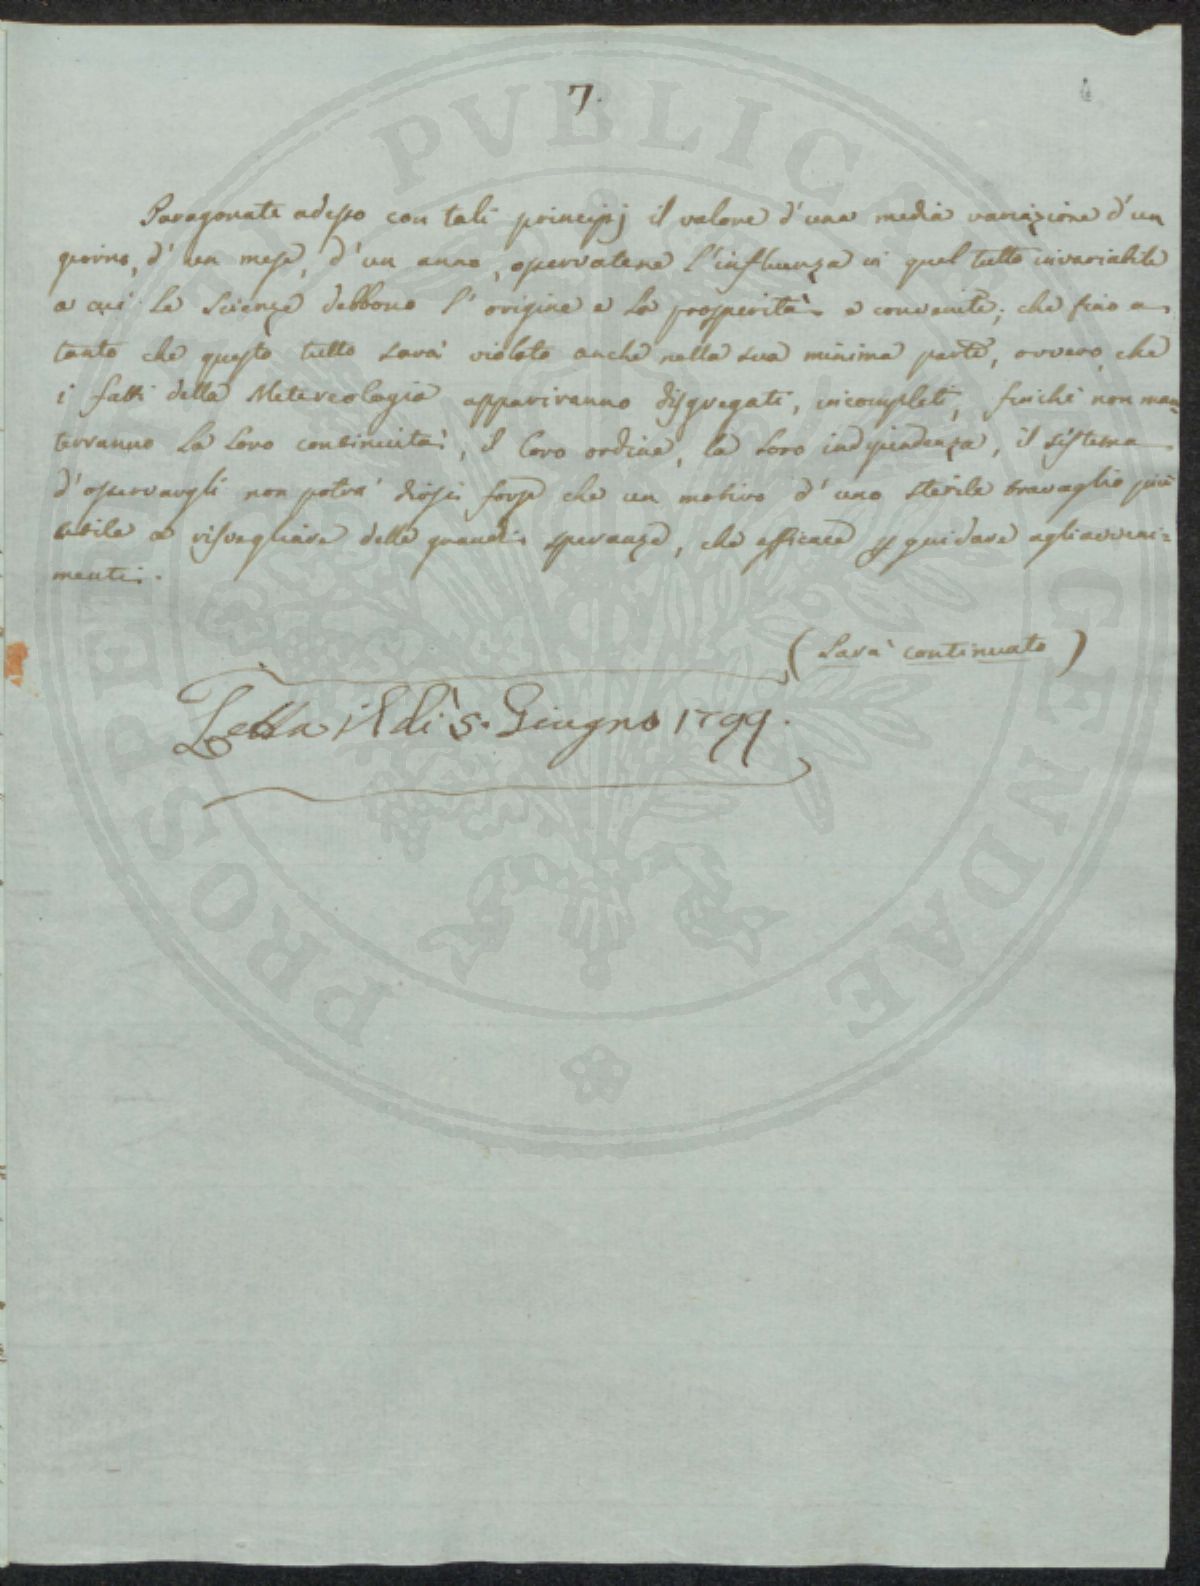 7.
Paragonate adesso con tali principj il valore d'una media variazione d'un
giorno, d'un mese, d'un anno, osservatene l'influenza in quel tutto invariabile
a cui le Scienze debbono l'origine e la prosperità e convenite, che fino a
tanto che questo tutto sarà violato anche nella sua minima parte, ovvero che
i fatti della Metereologia appariranno disgregati, incompleti, finchè non man=
terranno la loro continuità, il loro ordine, la loro indipendenza, il sistema
d'osservargli non potrà dirsi forse che un motivo d'uno sterile travaglio più
utile a risvegliare delle grandi speranze, che efficace p guidare agli avveni=
menti.
(Sarà continuato)
Letta il dì 5. Giugno 1799.
PROSPERITATI PVBLICAE AVGENDAE